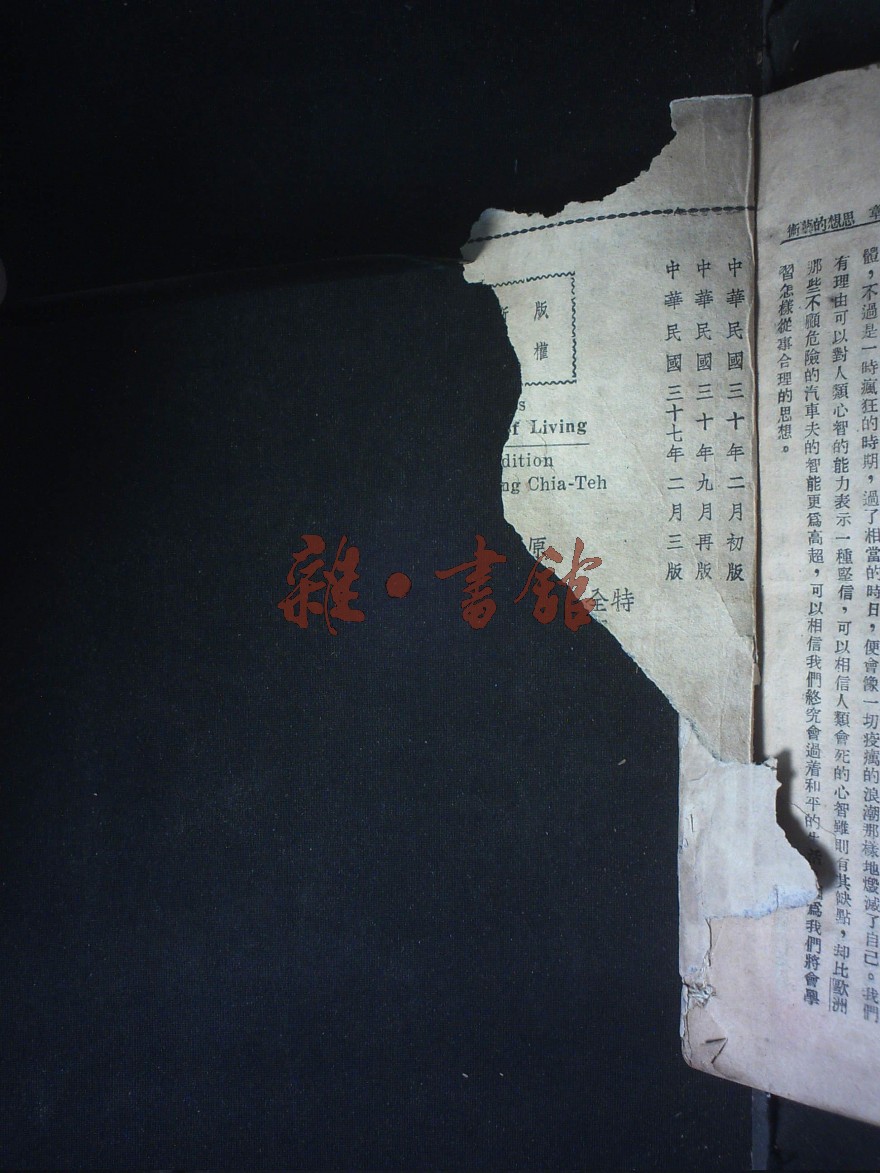 章 思想的藝術
體，不過是一時瘋狂的時期，過了相當的時日，便會像一切疫癘的浪潮那樣地燬滅了自己。我們
有理由可以對人類心智的能力表示一種堅信，可以相信人類會死的心智雖則有其缺點，却比歐洲
那些不顧危險的汽車夫的智能更爲高超，可以相信我們終究會過着和平的 爲我們將會學
習怎樣從事合理的思想。
中華民國三十年二月初版
中華民國三十年九月再版
中華民國三十七年二月三版
版權
of Living
dition
ng Chia-Teh
原
特全
雜·書館